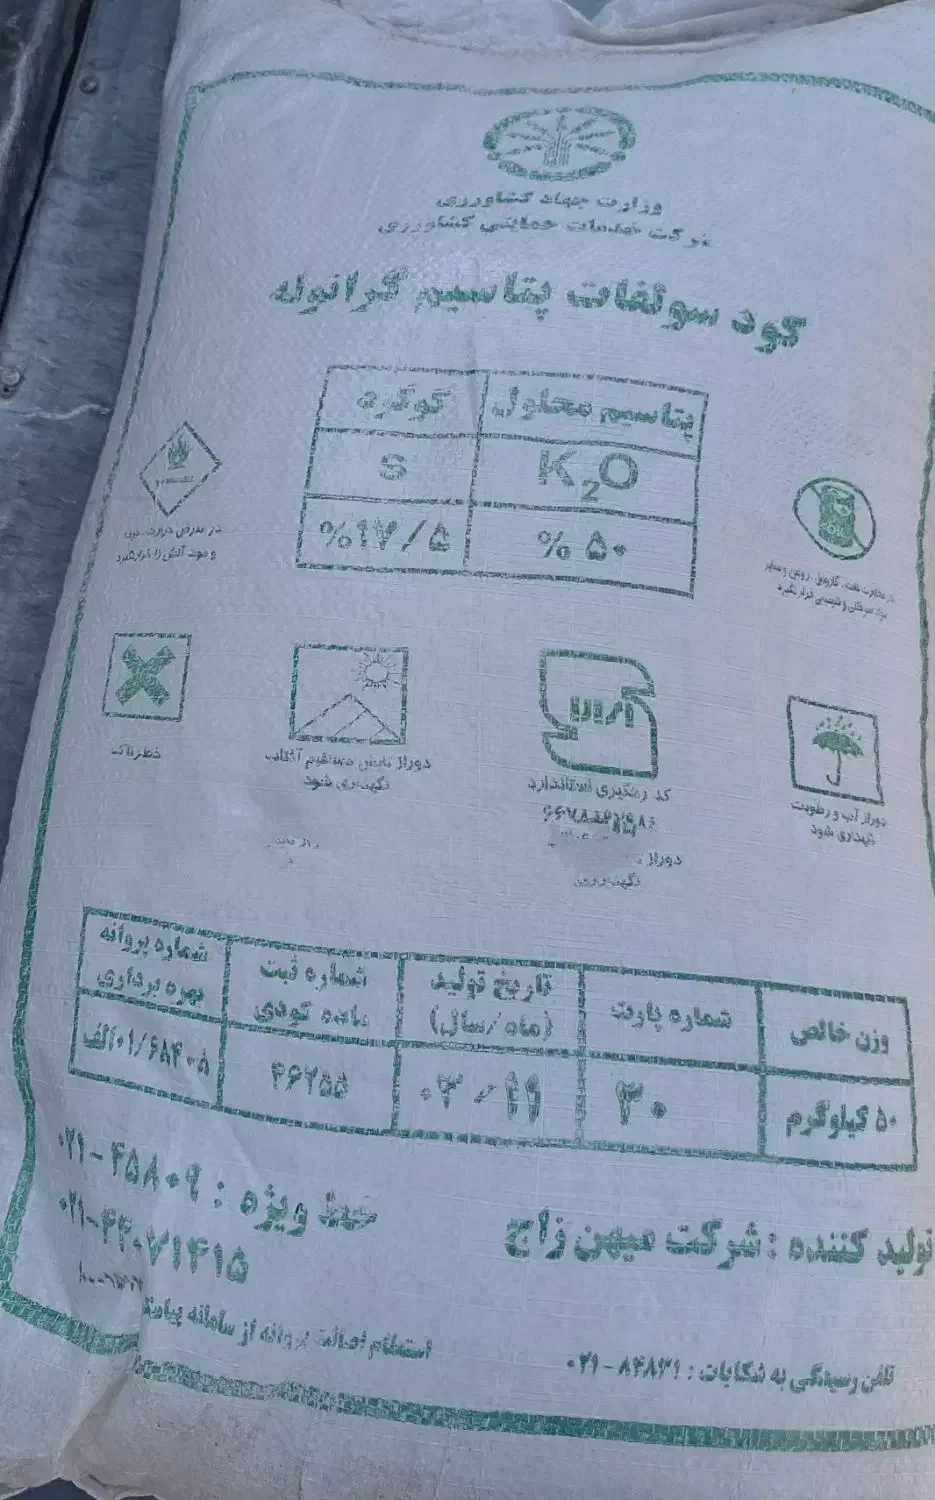 وزارت جهاد کشاورزی
شرکت خدمات حمایتی کشاورزی
کود سولفات پتاسیم گرانوله
پتاسیم محلول گوگرد
K₂O S
%۵۰ %۱۷/۵
در معرض حرارت
و خود آتش زا قرار نگیرد
در مجاورت نفت، گازوئیل، روغن و سایر
مواد سوختی و شیمیایی قرار نگیرد
خطرناک
دور از تابش مستقیم آفتاب
نگهداری شود
کد رهگیری استاندارد
دور از آب و رطوبت
نگهداری شود
دور از
نگهداری
وزن خالص
شماره پارت
تاریخ تولید
(ماه/سال)
شماره ثبت
ماده کودی
شماره پروانه
بهره برداری
۵۰ کیلوگرم
۳۰
۰۳/۱۱
۴۶۲۵۵
۰۱/۶۸۴۰۵الف
تولید کننده : شرکت میهن زاج
خط ویژه : ۰۲۱-۴۵۸۰۹
تلفن رسیدگی به شکایات : ۰۲۱-۸۴۸۳۱
استعلام اصالت پروانه از سامانه